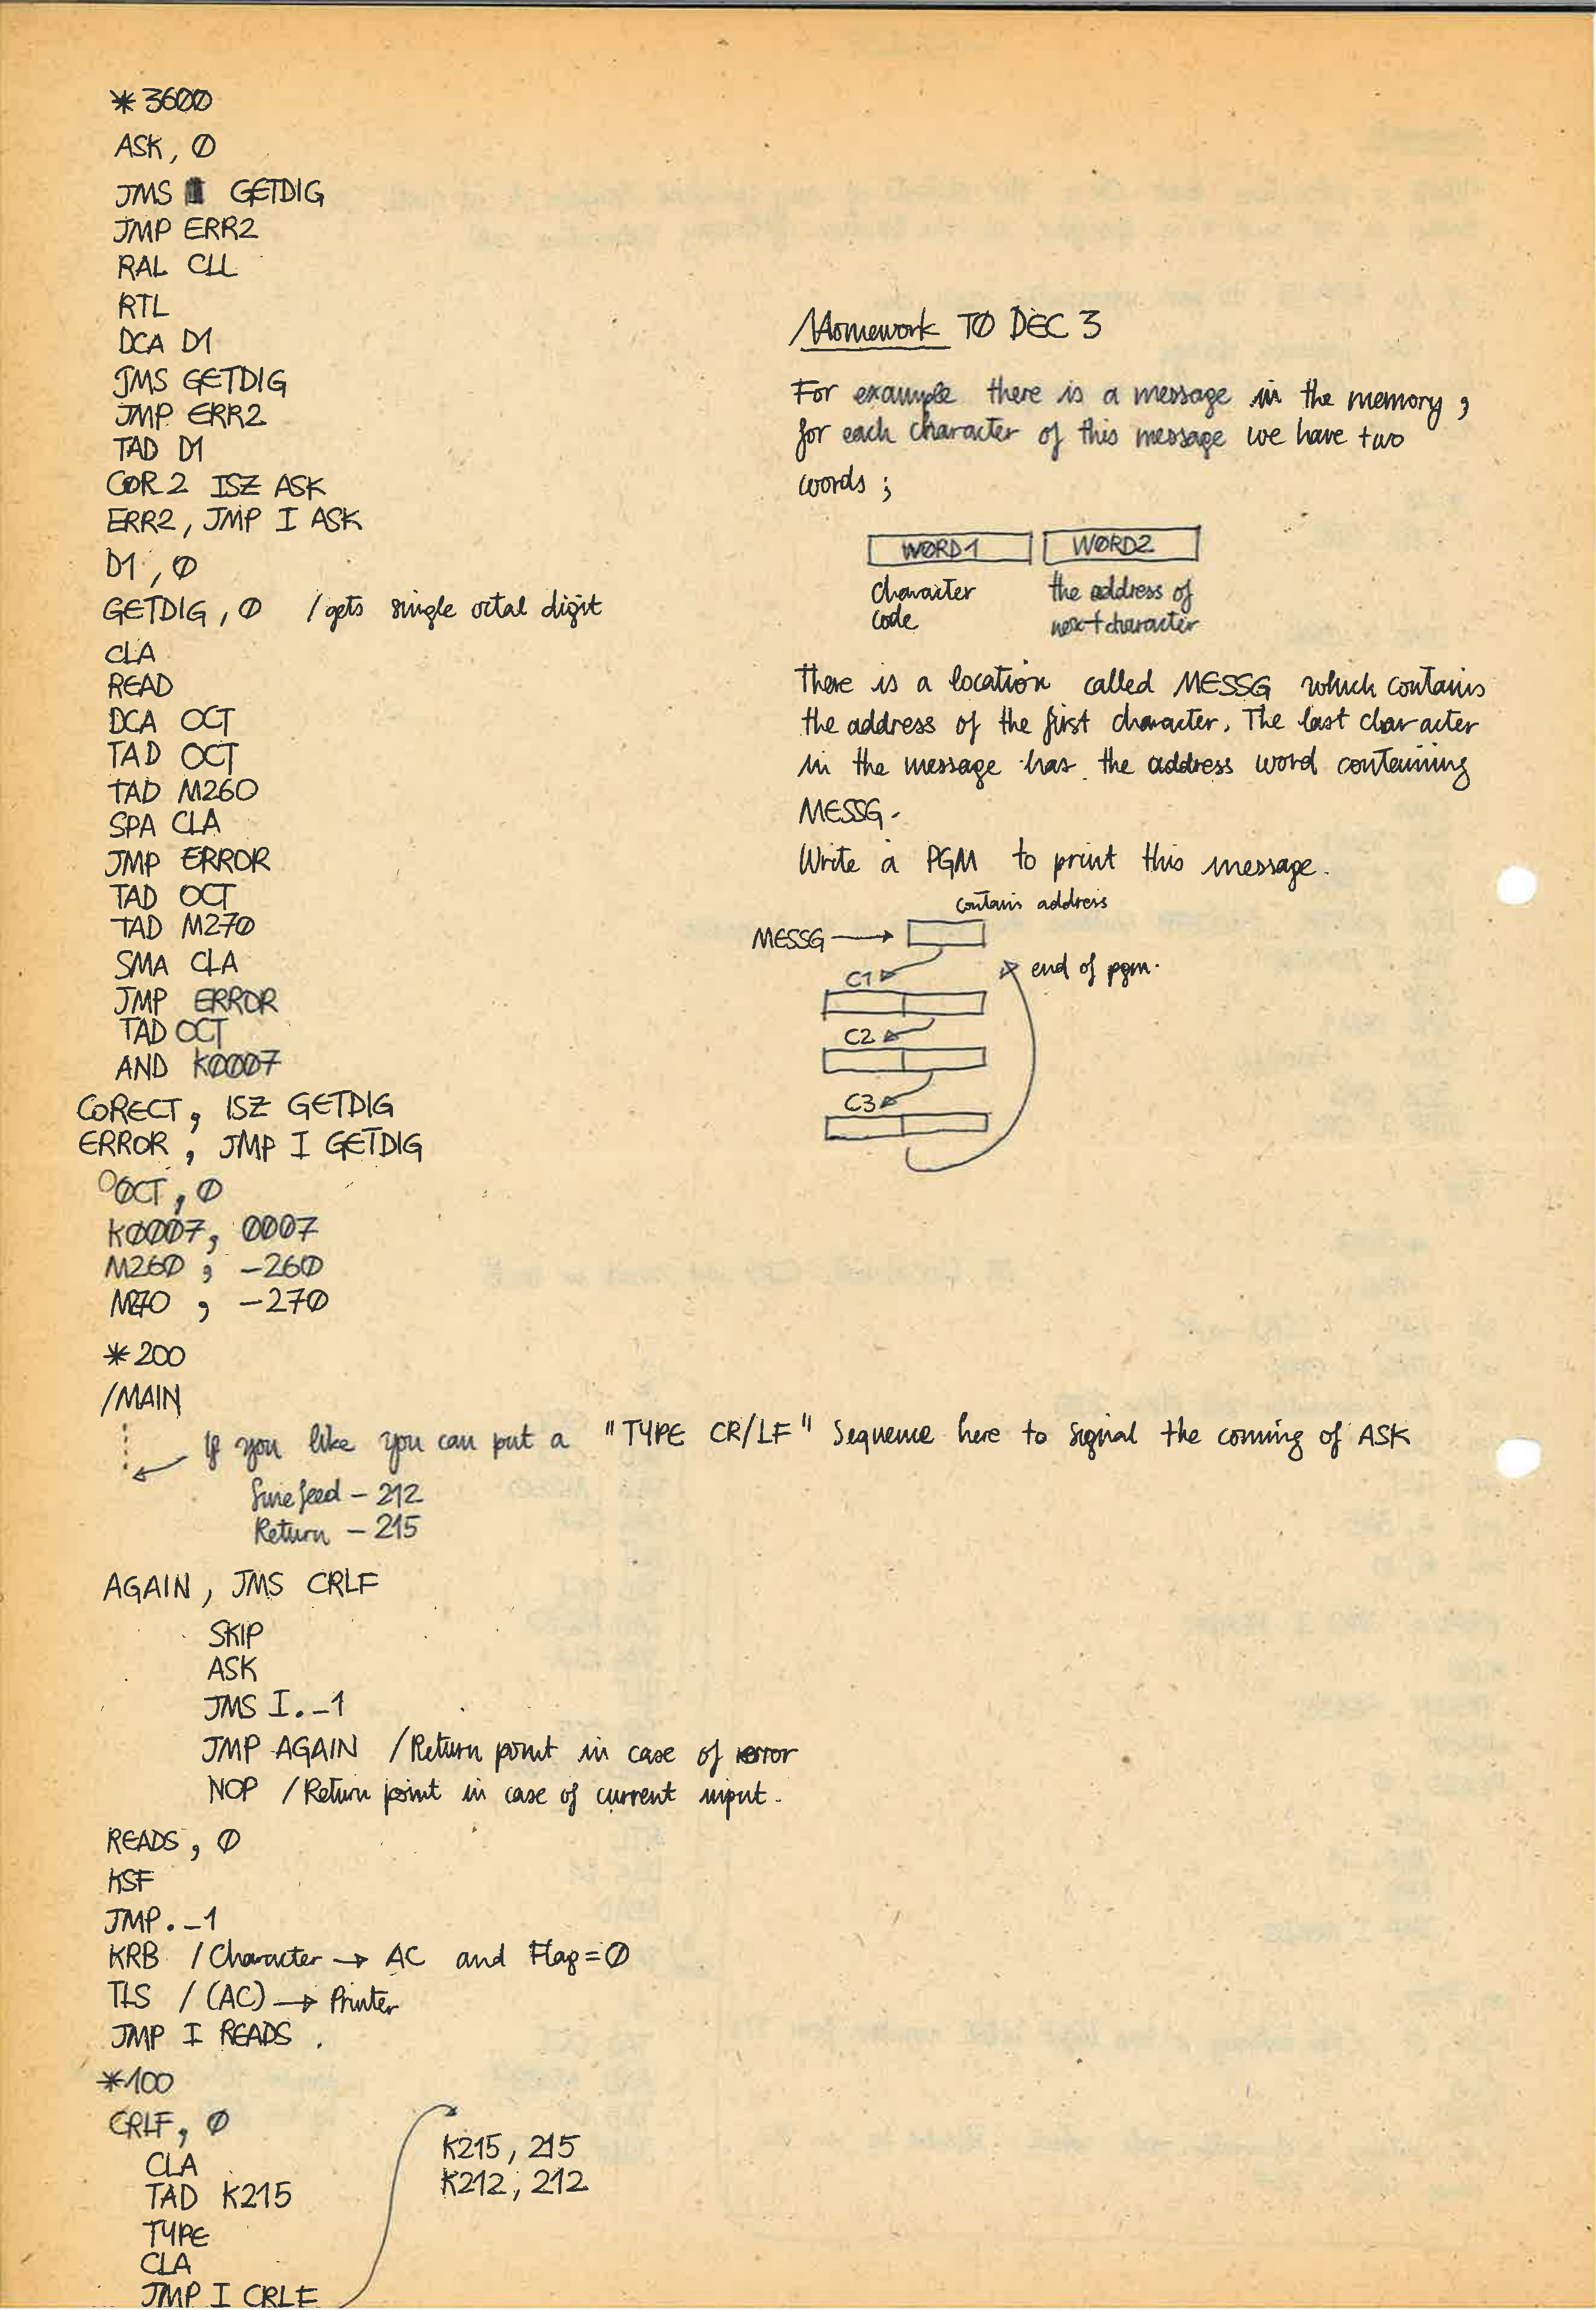 *3600
ASK, 0
JMS GETDIG
JMP ERR2
RAL CLL
RTL
DCA D1
JMS GETDIG
JMP ERR2
TAD D1
COR2 ISZ ASK
ERR2, JMP I ASK
D1, 0
GETDIG, 0 /gets single octal digit
CLA
READ
DCA OCT
TAD OCT
TAD M260
SPA CLA
JMP ERROR
TAD OCT
TAD M270
SMA CLA
JMP ERROR
TAD OCT
AND K0007
CORECT, ISZ GETDIG
ERROR, JMP I GETDIG
OCT, 0
K0007, 0007
M260, -260
M270, -270
*200
/MAIN
If you like you can put a "TYPE CR/LF" Sequence here to signal the coming of ASK
Line feed - 212
Return - 215
AGAIN, JMS CRLF
SKIP
ASK
JMS I.-1
JMP AGAIN /Return point in case of error
NOP /Return point in case of current input.
READS, 0
KSF
JMP.-1
KRB /Character → AC and Flag=0
TLS /(AC) → Printer
JMP I READS.
*100
CRLF, 0
CLA
TAD K215
TYPE
CLA
JMP I CRLF
K215, 215
K212, 212
Homework TO DEC 3
For example there is a message in the memory,
for each character of this message we have two
words;
WORD1 WORD2
character the address of
code next character
There is a location called MESSG which contains
the address of the first character. The last character
in the message has the address word containing
MESSG.
Write a PGM to print this message.
contains address
MESSG →
C1 end of pgm.
C2
C3